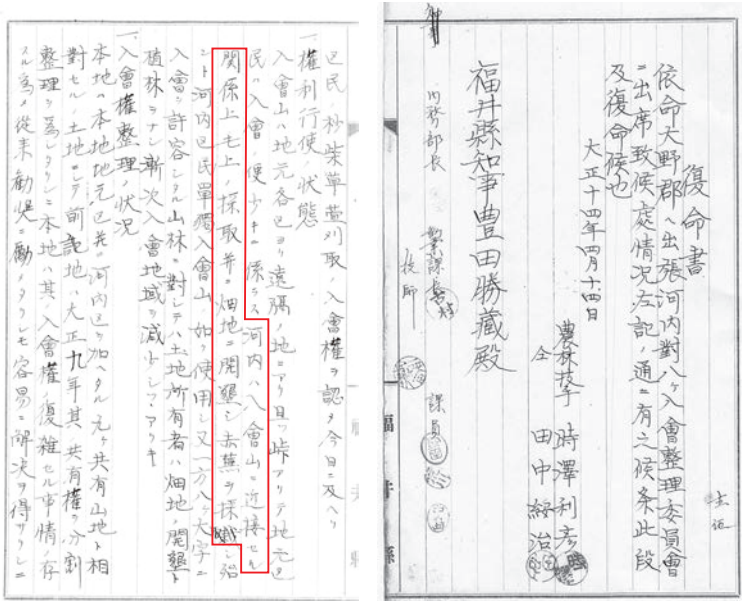 復命書
依命大野郡ヘ出張河内對八ヶ入會整理委員會
ニ出席致候處情况左記ノ通ニ有之候条此段
及復命候也
大正十四年四月十四日
農林技手 時澤利彦
仝 田中 治
福井縣知事豊田勝藏殿
内務部長
課長
技師
課員
福井縣
区民ノ杪柴草萱刈取ノ入會權ヲ認メ今日ニ及ヘリ
一、權利行使ノ状態
入會山ハ地元各区ヨリ遠隔ノ地ニアリ且ツ峠アリテ地元区
民ハ入會ノ便少キニ係ラス河内ハ入會山ニ近接セル
関係上毛上ノ採取并ニ畑地ニ開墾シ赤蕪ヲ採シ殆
ント河内区民單獨入會山ノ如ク使用シ又一方八ヶ大字ニ
入會ヲ許容シタル山林ニ對シテハ土地所有者ハ畑地ノ開墾ト
植林ヲナシ漸次入會地域ヲ減少シツヽアリキ
一、入會權整理ノ状况
本地ハ本地地元区并ニ河内区ヲ加ヘタル元々共有山地ト相
對セル土地ニシテ前記地ハ大正九年其ノ共有權ヲ分割
整理ヲ為シタリシニ本地ハ其ノ入會權ノ復雑セル事情ノ存
スル為メ從来勧奨ニ勵メタリシモ容易ニ解決ヲ得サリシニ